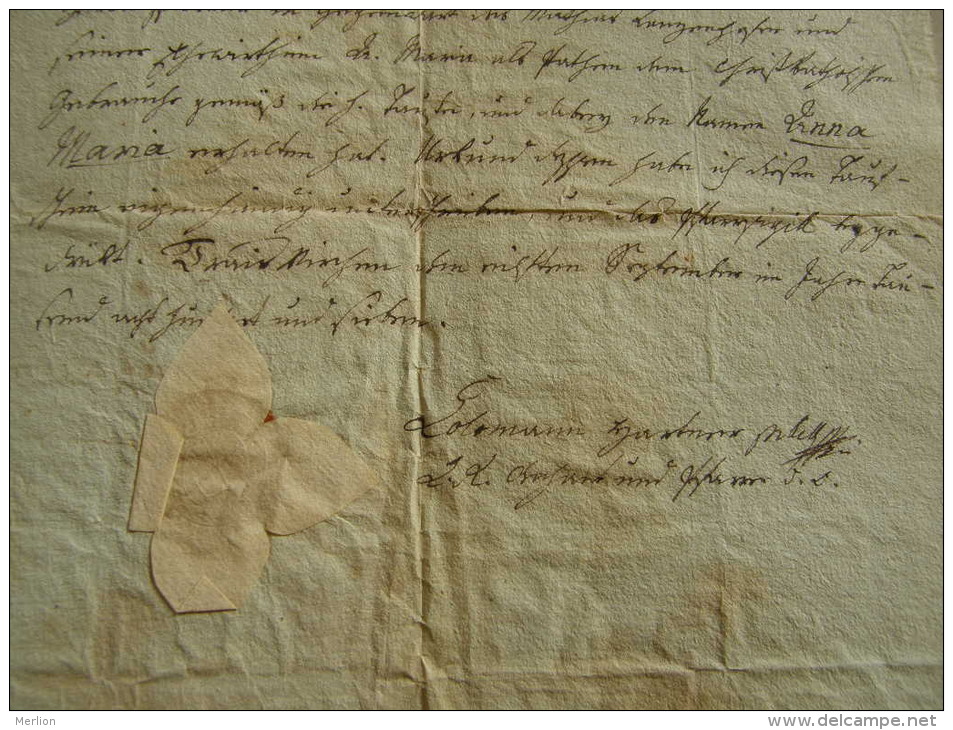 in Gegenwart des Mathias und
seiner Ehewirthin A. Maria als Pathen dem Christkatholischen
Gebrauche gemäß die h. Taufe, und dabey den Namen Anna
Maria erhalten hat. Urkund dessen habe ich diesen Tauf-
schein eigenhändig unterschrieben und das Pfarrsigill beyge-
drükt. Traiskirchen den eilften September im Jahre Tau-
send acht hundert und sieben.
Colomann Hartner
und Pfarrer
Merlion
www.delcampe.net